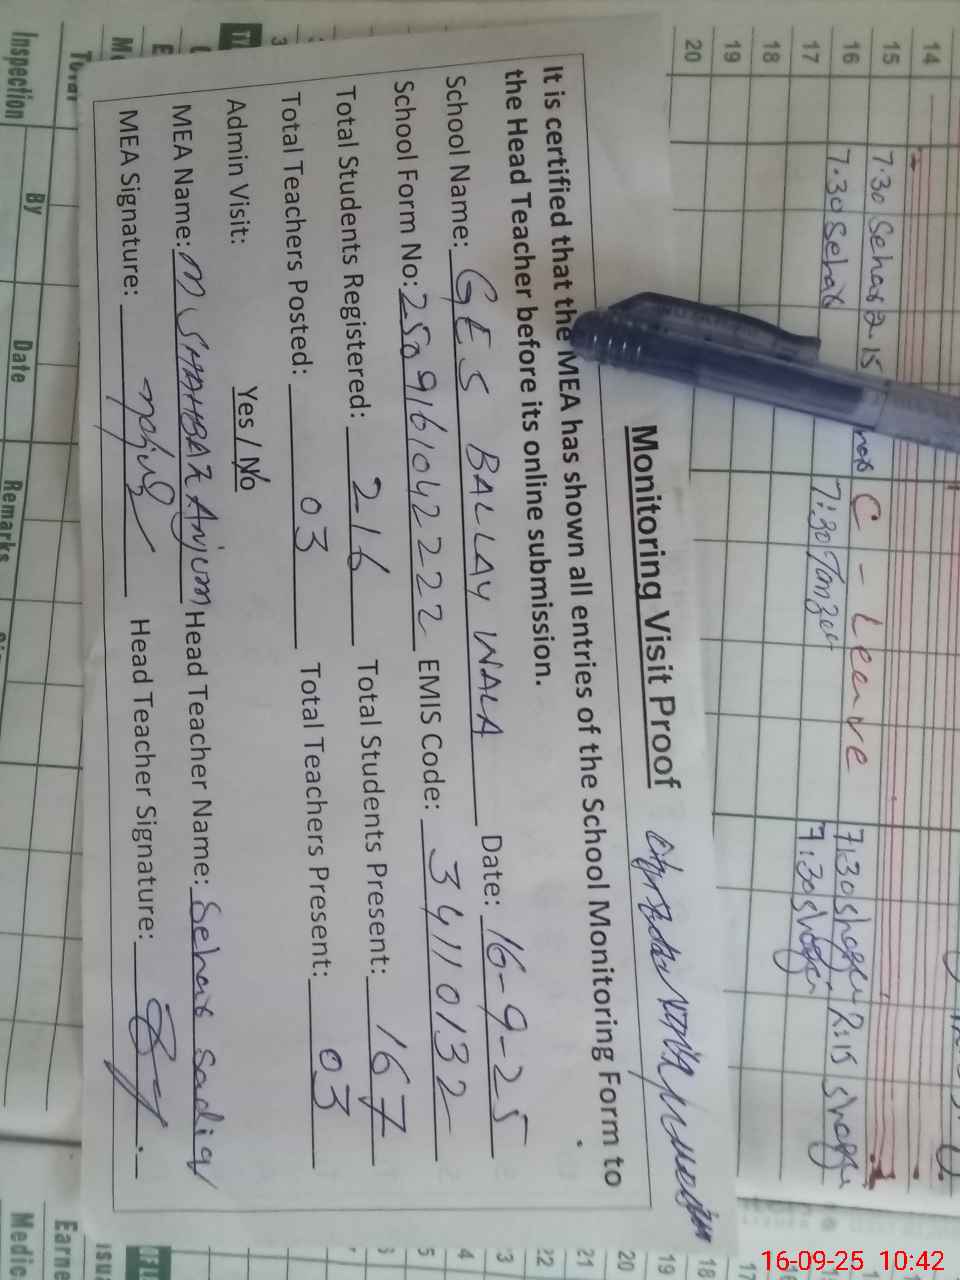 Monitoring Visit Proof
It is certified that the MEA has shown all entries of the School Monitoring Form to
the Head Teacher before its online submission.
School Name: GES BALLAY WALA Date: 16-9-25
School Form No: 2509161042222 EMIS Code: 34110132
Total Students Registered: 216 Total Students Present: 167
Total Teachers Posted: 03 Total Teachers Present: 03
Admin Visit: Yes / No
MEA Name: M SHAHBAZ Anjum Head Teacher Name: Sehar Sadiq
MEA Signature: Head Teacher Signature:
14
15 7.30 Sehar 2.15 7:30 2:15
16 7.30 Sehar C - Leave 7:30
17 7:30
18
19
20
Inspection
By Date Remarks
18
19
20
21
22
3
4
5
Earne
Medic
16-09-25 10:42